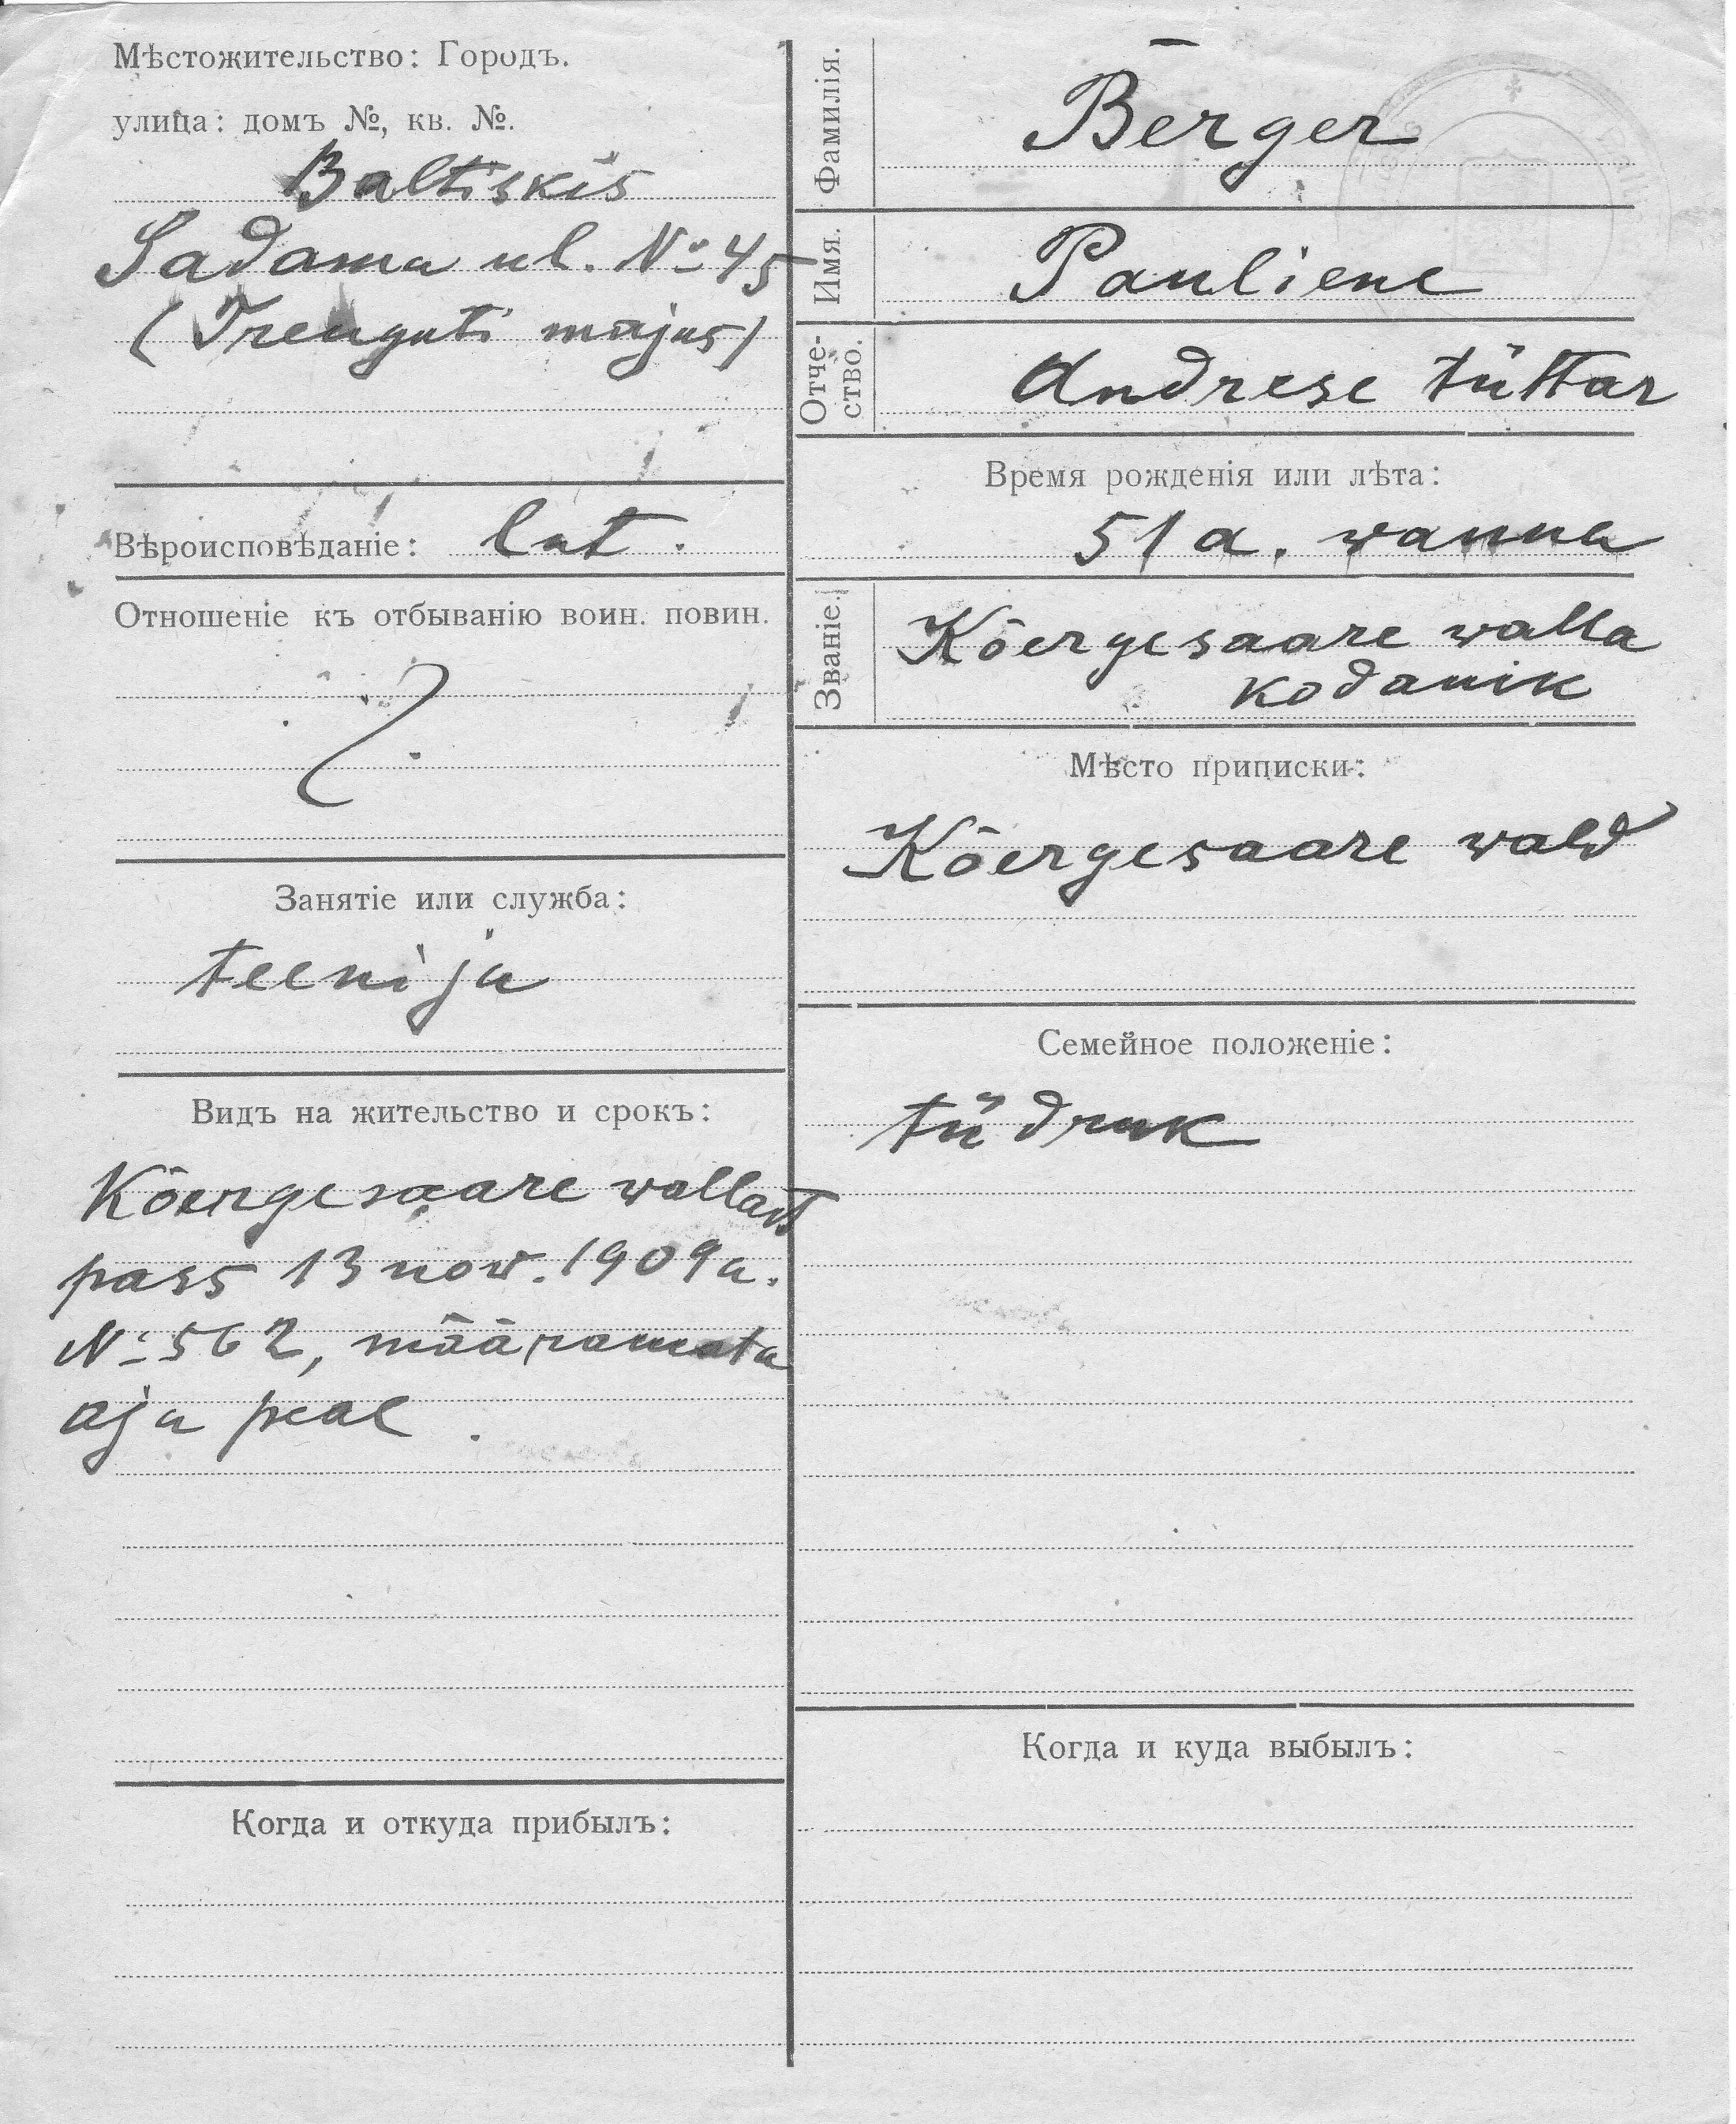 Мѣстожительство: Городъ.
улица: домъ №, кв. №.
Baltiskis
Sadama ul. № 45
majas)
Вѣроисповѣданіе: lut.
Отношеніе къ отбыванію воин. повин.
Занятіе или служба:
teenija
Видъ на жительство и срокъ:
Kõergesaare wallast
pass 13 now. 1909 a.
№ 562, määramata
aja peal.
Когда и откуда прибылъ:
Фамилія. Berger
Имя. Pauliene
Отче-
ство. Andrese tüttar
Время рожденія или лѣта:
51 a. wanna
Званіе. Kõergesaare walla
kodanik
Мѣсто приписки:
Kõergesaare wald
Семейное положеніе:
tüdruk
Когда и куда выбылъ: